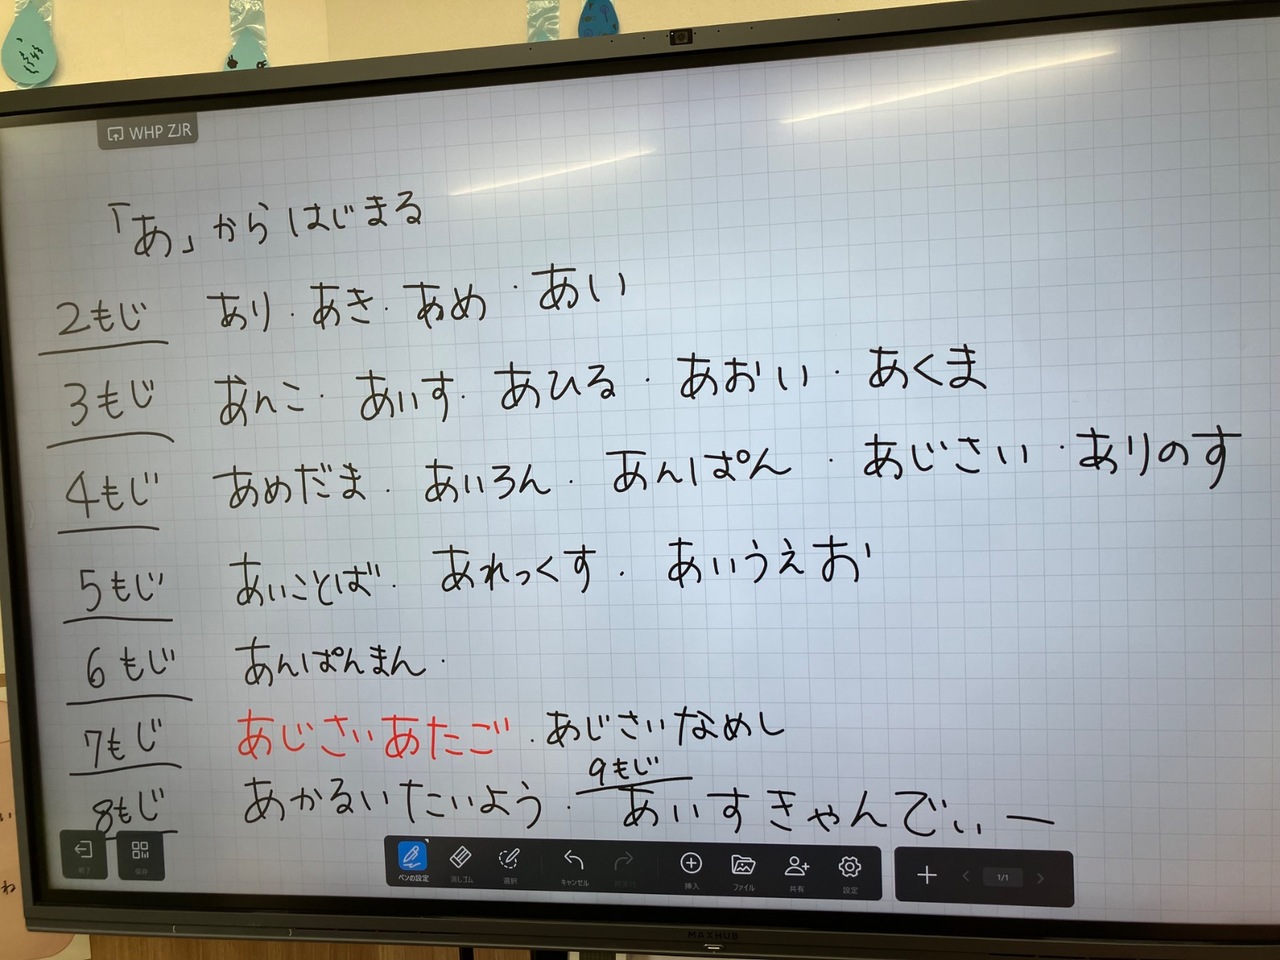 WHP ZJR
「あ」からはじまる
2もじ あり・あき・あめ・あい
3もじ あんこ・あいす・あひる・あおい・あくま
4もじ あめだま・あいろん・あんぱん・あじさい・ありのす
5もじ あいことば・あれっくす・あいうえお
6もじ あんぱんまん・
7もじ あじさいあたご・あじさいなめし
8もじ あかるいたいよう・ 9もじ あいすきゃんでぃー
終了 保存 ペンの設定 消しゴム 選択 キャンセル 挿入 ファイル 共有 設定 1/1
MAXHUB
ね